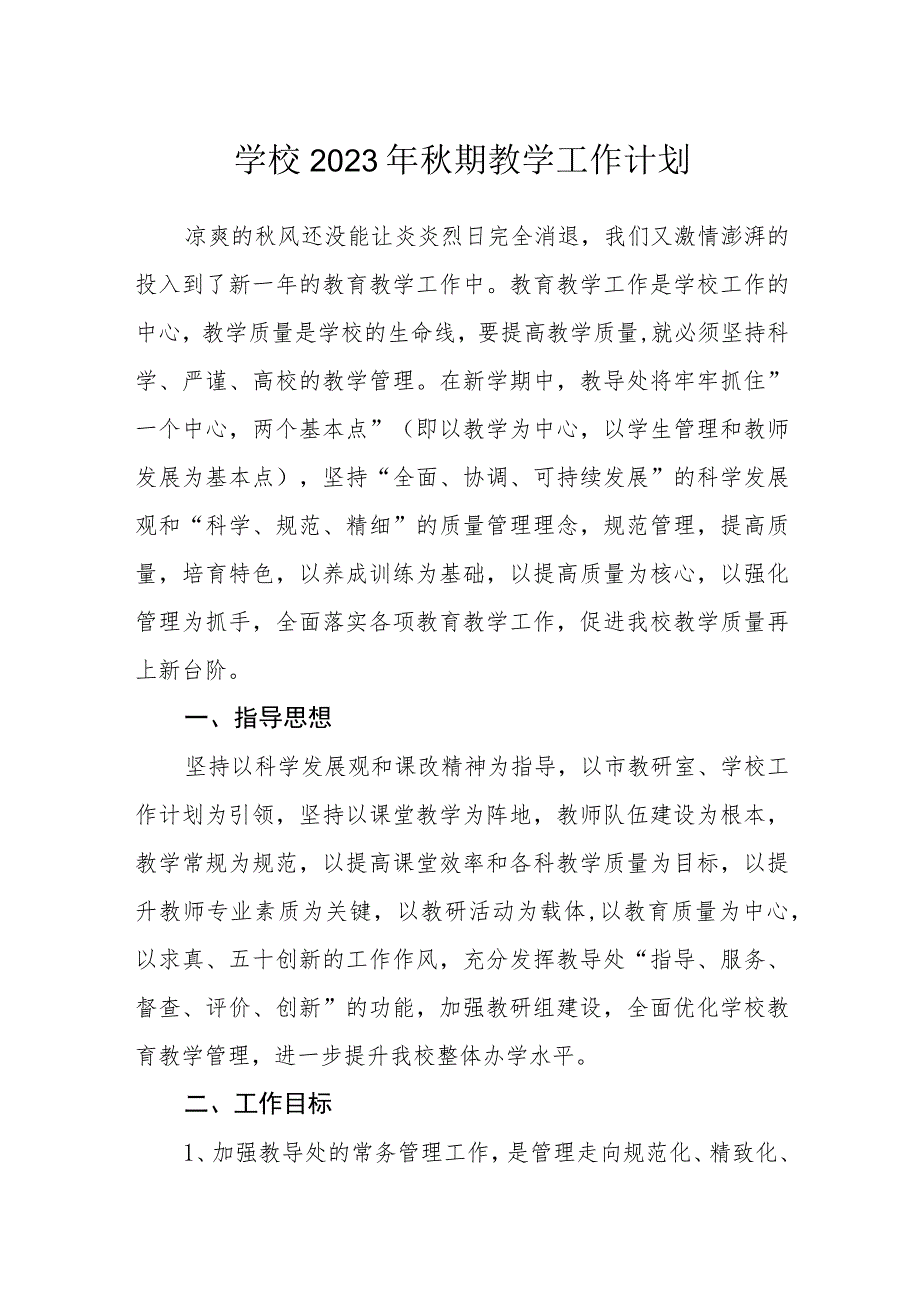 学校2023年秋期教学工作计划
凉爽的秋风还没能让炎炎烈日完全消退，我们又激情澎湃的
投入到了新一年的教育教学工作中。教育教学工作是学校工作的
中心，教学质量是学校的生命线，要提高教学质量,就必须坚持科
学、严谨、高校的教学管理。在新学期中，教导处将牢牢抓住”
一个中心，两个基本点”（即以教学为中心，以学生管理和教师
发展为基本点），坚持“全面、协调、可持续发展”的科学发展
观和“科学、规范、精细”的质量管理理念，规范管理，提高质
量，培育特色，以养成训练为基础，以提高质量为核心，以强化
管理为抓手，全面落实各项教育教学工作，促进我校教学质量再
上新台阶。
一、指导思想
坚持以科学发展观和课改精神为指导，以市教研室、学校工
作计划为引领，坚持以课堂教学为阵地，教师队伍建设为根本，
教学常规为规范，以提高课堂效率和各科教学质量为目标，以提
升教师专业素质为关键，以教研活动为载体,以教育质量为中心，
以求真、五十创新的工作作风，充分发挥教导处“指导、服务、
督查、评价、创新”的功能，加强教研组建设，全面优化学校教
育教学管理，进一步提升我校整体办学水平。
二、工作目标
1、加强教导处的常务管理工作，是管理走向规范化、精致化、